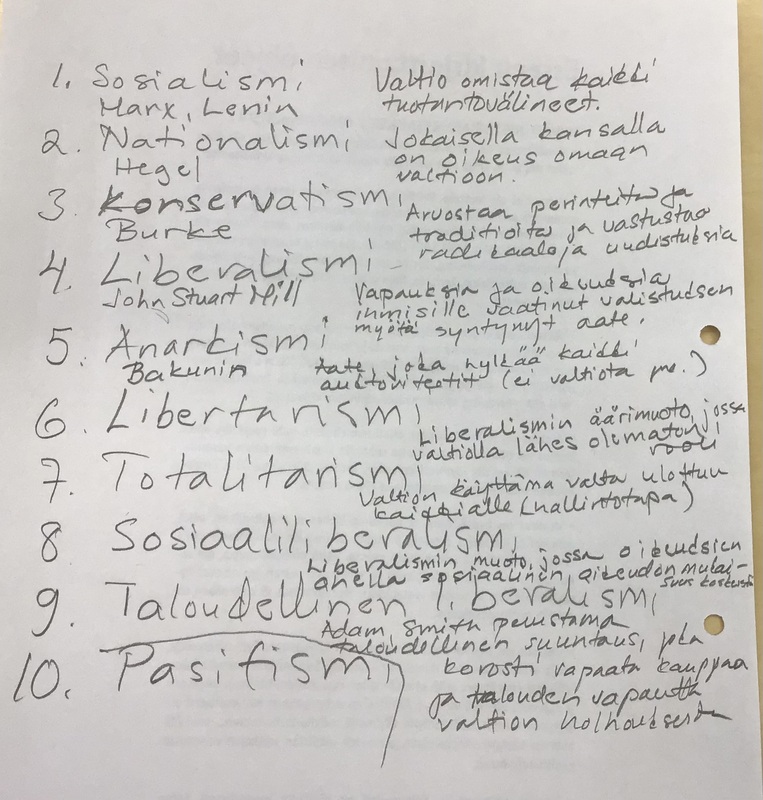 1. Sosialismi
Marx, Lenin
Valtio omistaa kaikki
tuotantovälineet.
2. Nationalismi
Hegel
Jokaisella kansalla
on oikeus omaan
valtioon.
3. Konservatismi
Burke
Arvostaa perinteitä ja
traditioita ja vastustaa
radikaaleja uudistuksia
4. Liberalismi
John Stuart Mill
Vapauksia ja oikeuksia
ihmisille vaatinut valistuksen
myötä syntynyt aate.
5. Anarkismi
Bakunin
Aate, joka hylkää kaikki
auktoriteetit (ei valtiota )
6. Libertarismi
Liberalismin äärimuoto, jossa
valtiolla lähes olematon
rooli
7. Totalitarismi
Valtion käyttämä valta ulottuu
kaikkialle (hallintotapa)
8 Sosiaaliliberalismi
Liberalismin muoto, jossa oikeudsien
ohella sosiaalinen oikeudenmukai-
suus
9. Taloudellinen liberalismi
Adam Smith perustama
taloudellinen suuntaus, joka
korosti vapaata kauppaa
ja talouden vapautta
valtion holhouksesta
10. Pasifismi